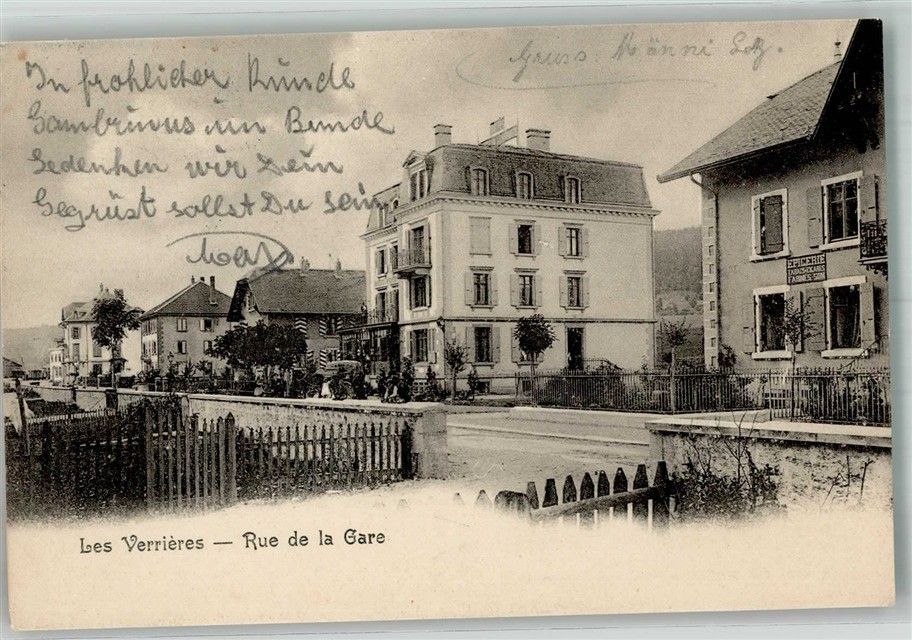 In frohlicher Runde
Gambrinus im Bunde
Gedenken wir Dein
Gegrüst sollst Du sein
Max
Gruss: Männi
EPICERIE
TABACS & CIGARES
FARINES, SON
Les Verrières — Rue de la Gare